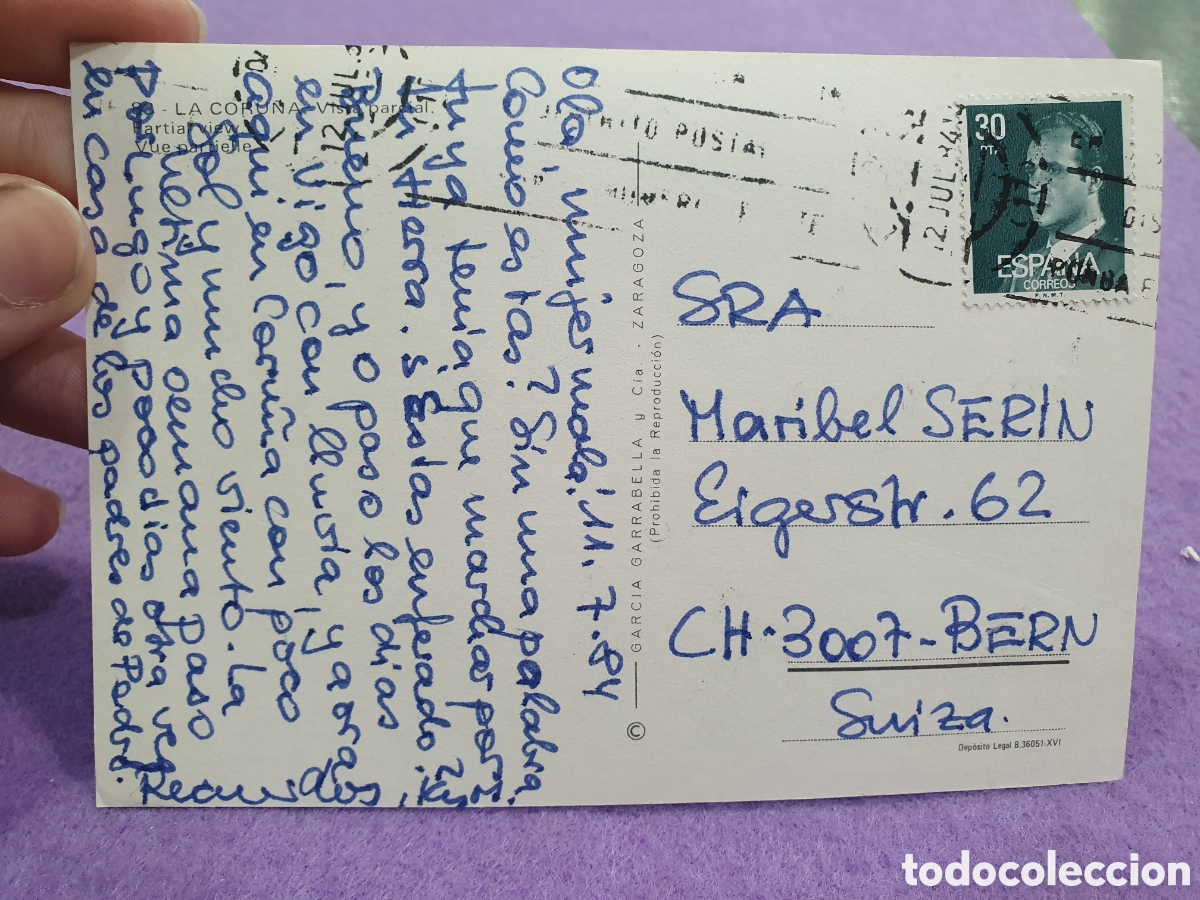 83 - LA CORUÑA. Vista parcial.
Partial view.
Vue partielle.
Ola, mujer mala! 11. 7. 84
Como estas? Sin una palabra
tuya tenia que mardiar por
tierra. Estas enferado?
Bueno, yo paso los días
en Vigo con lluvia, y aora
aqui en Coruña con poco
sol y mucho viento. La
ultima semana paso
Lugo y poco dias otra vez
en casa de los padres de Pedro.
Recuerdos,
© GARCIA GARRABELLA y Cía. - ZARAGOZA
(Prohibida la Reproducción)
12 JUL. 84
30
PTA
ESPAÑA
CORREOS
F.N.M.T.
SRA
Maribel SERIN
Eigerstr. 62
CH-3007-BERN
Suiza.
Depósito Legal B.36051-XVI
todocoleccion